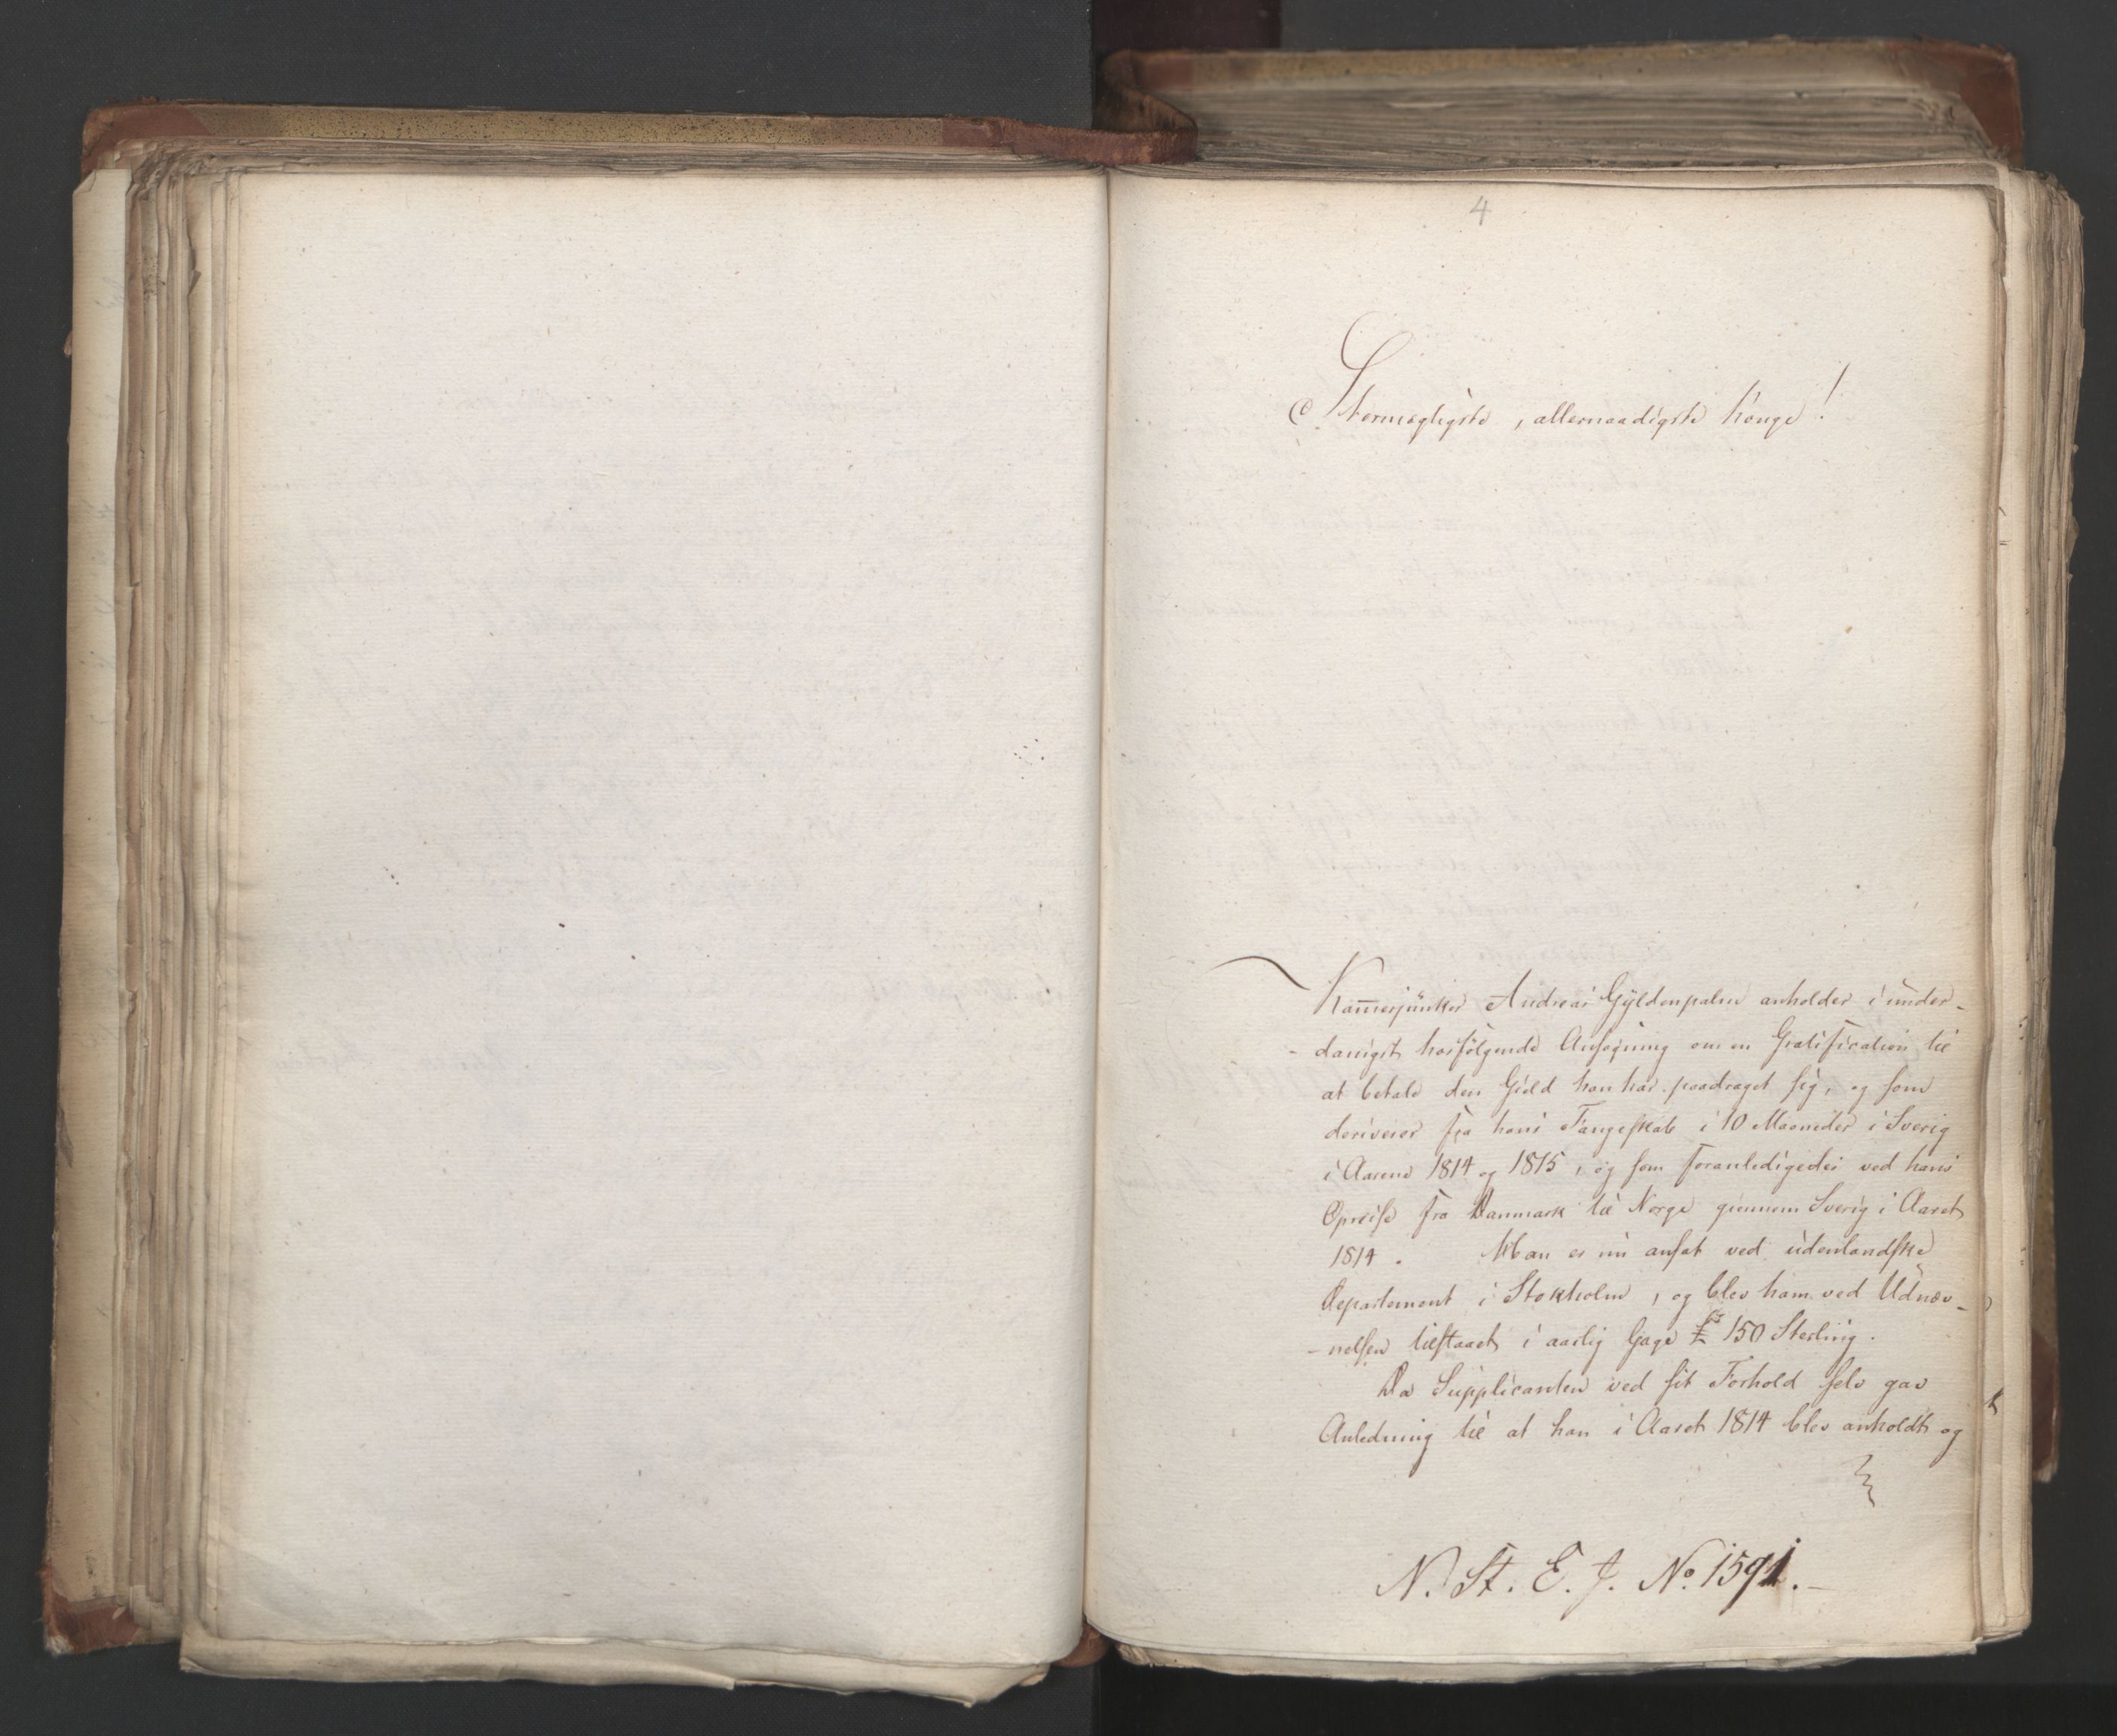 4
Stormægtigste, allernaadigste Konge!
Kam̅erjunker Andreas Gyldenpalm anholder i under-
-danigst hosfølgende Ansøgning om en Gratification til
at betale den Gield han har paadraget sig, og som
deriverer fra hans Fangeskab i 10 Maaneder i Sverig
i Aarene 1814 og 1815, og som foranledigedes ved hans
Opreise fra Danmark til Norge giennem Sverig i Aaret
1814. Man er nu ansat ved udenlandske
Departement i Stokholm, og blev ham ved Udnæv-
-nelsen tilstaaet i aarlig Gage £ 150 Sterling.
Da Supplicanten ved sit Forhold selv gav
Anledning til at han i Aaret 1814 blev anholdt og
N. St. E. J. No. 1591.